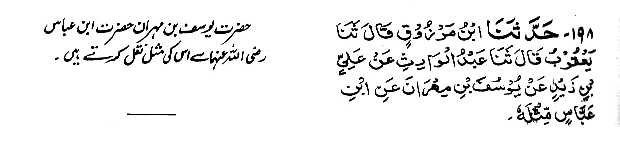 ۱۹۸- حَدَّثَنَا ابْنُ مَرْزُوْقٍ قَالَ ثَنَا
يَعْقُوْبُ قَالَ ثَنَا عَبْدُ الْوَارِثِ عَنْ عَلِيِّ
بْنِ زَيْدٍ عَنْ يُوْسُفَ بْنِ مِهْرَانَ عَنِ ابْنِ
عَبَّاسٍ مِّثْلَهٗ۔
حضرت یوسف بن مہران حضرت ابن عباس
رضی اللہ عنہما سے اس کی مثل نقل کرتے ہیں۔